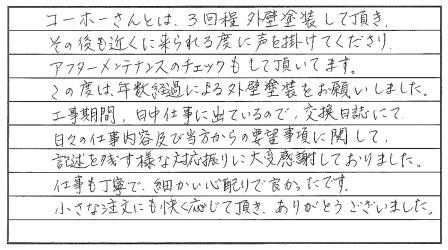 コーホーさんとは、3回程外壁塗装して頂き、
その後も近くに来られる度に声を掛けてくださり、
アフターメンテナンスのチェックもして頂いてます。
この度は、年数経過による外壁塗装をお願いしました。
工事期間、日中仕事に出ているので、交換日誌にて
日々の仕事内容及び当方からの要望事項に関して、
記述を残す様な対応振りに大変感謝しておりました。
仕事も丁寧で、細かい心配りで良かったです。
小さな注文にも快く応じて頂き、ありがとうございました。